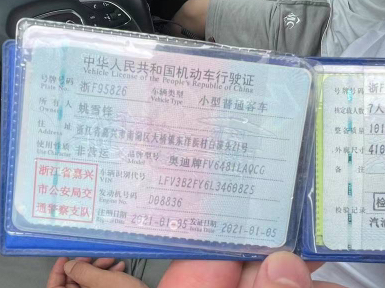 中华人民共和国机动车行驶证
Vehicle License of the People's Republic of China
号牌号码 浙F95826 车辆类型 小型普通客车
Plate No. Vehicle Type
所有人 姚雪锋
住址 浙江省嘉兴市南湖区大桥镇
使用性质 非营运 品牌型号 奥迪牌FV6481LAQCG
浙江省嘉兴
市公安局交
通警察支队
车辆识别代号 LFV3B2FY6L3460825
VIN
发动机号码 D08836
注册日期 2021-01-05 发证日期 2021-01-05
Issue Date
号牌号码 浙F
核定载人数 7人
整备质量
外廓尺寸
检验记录